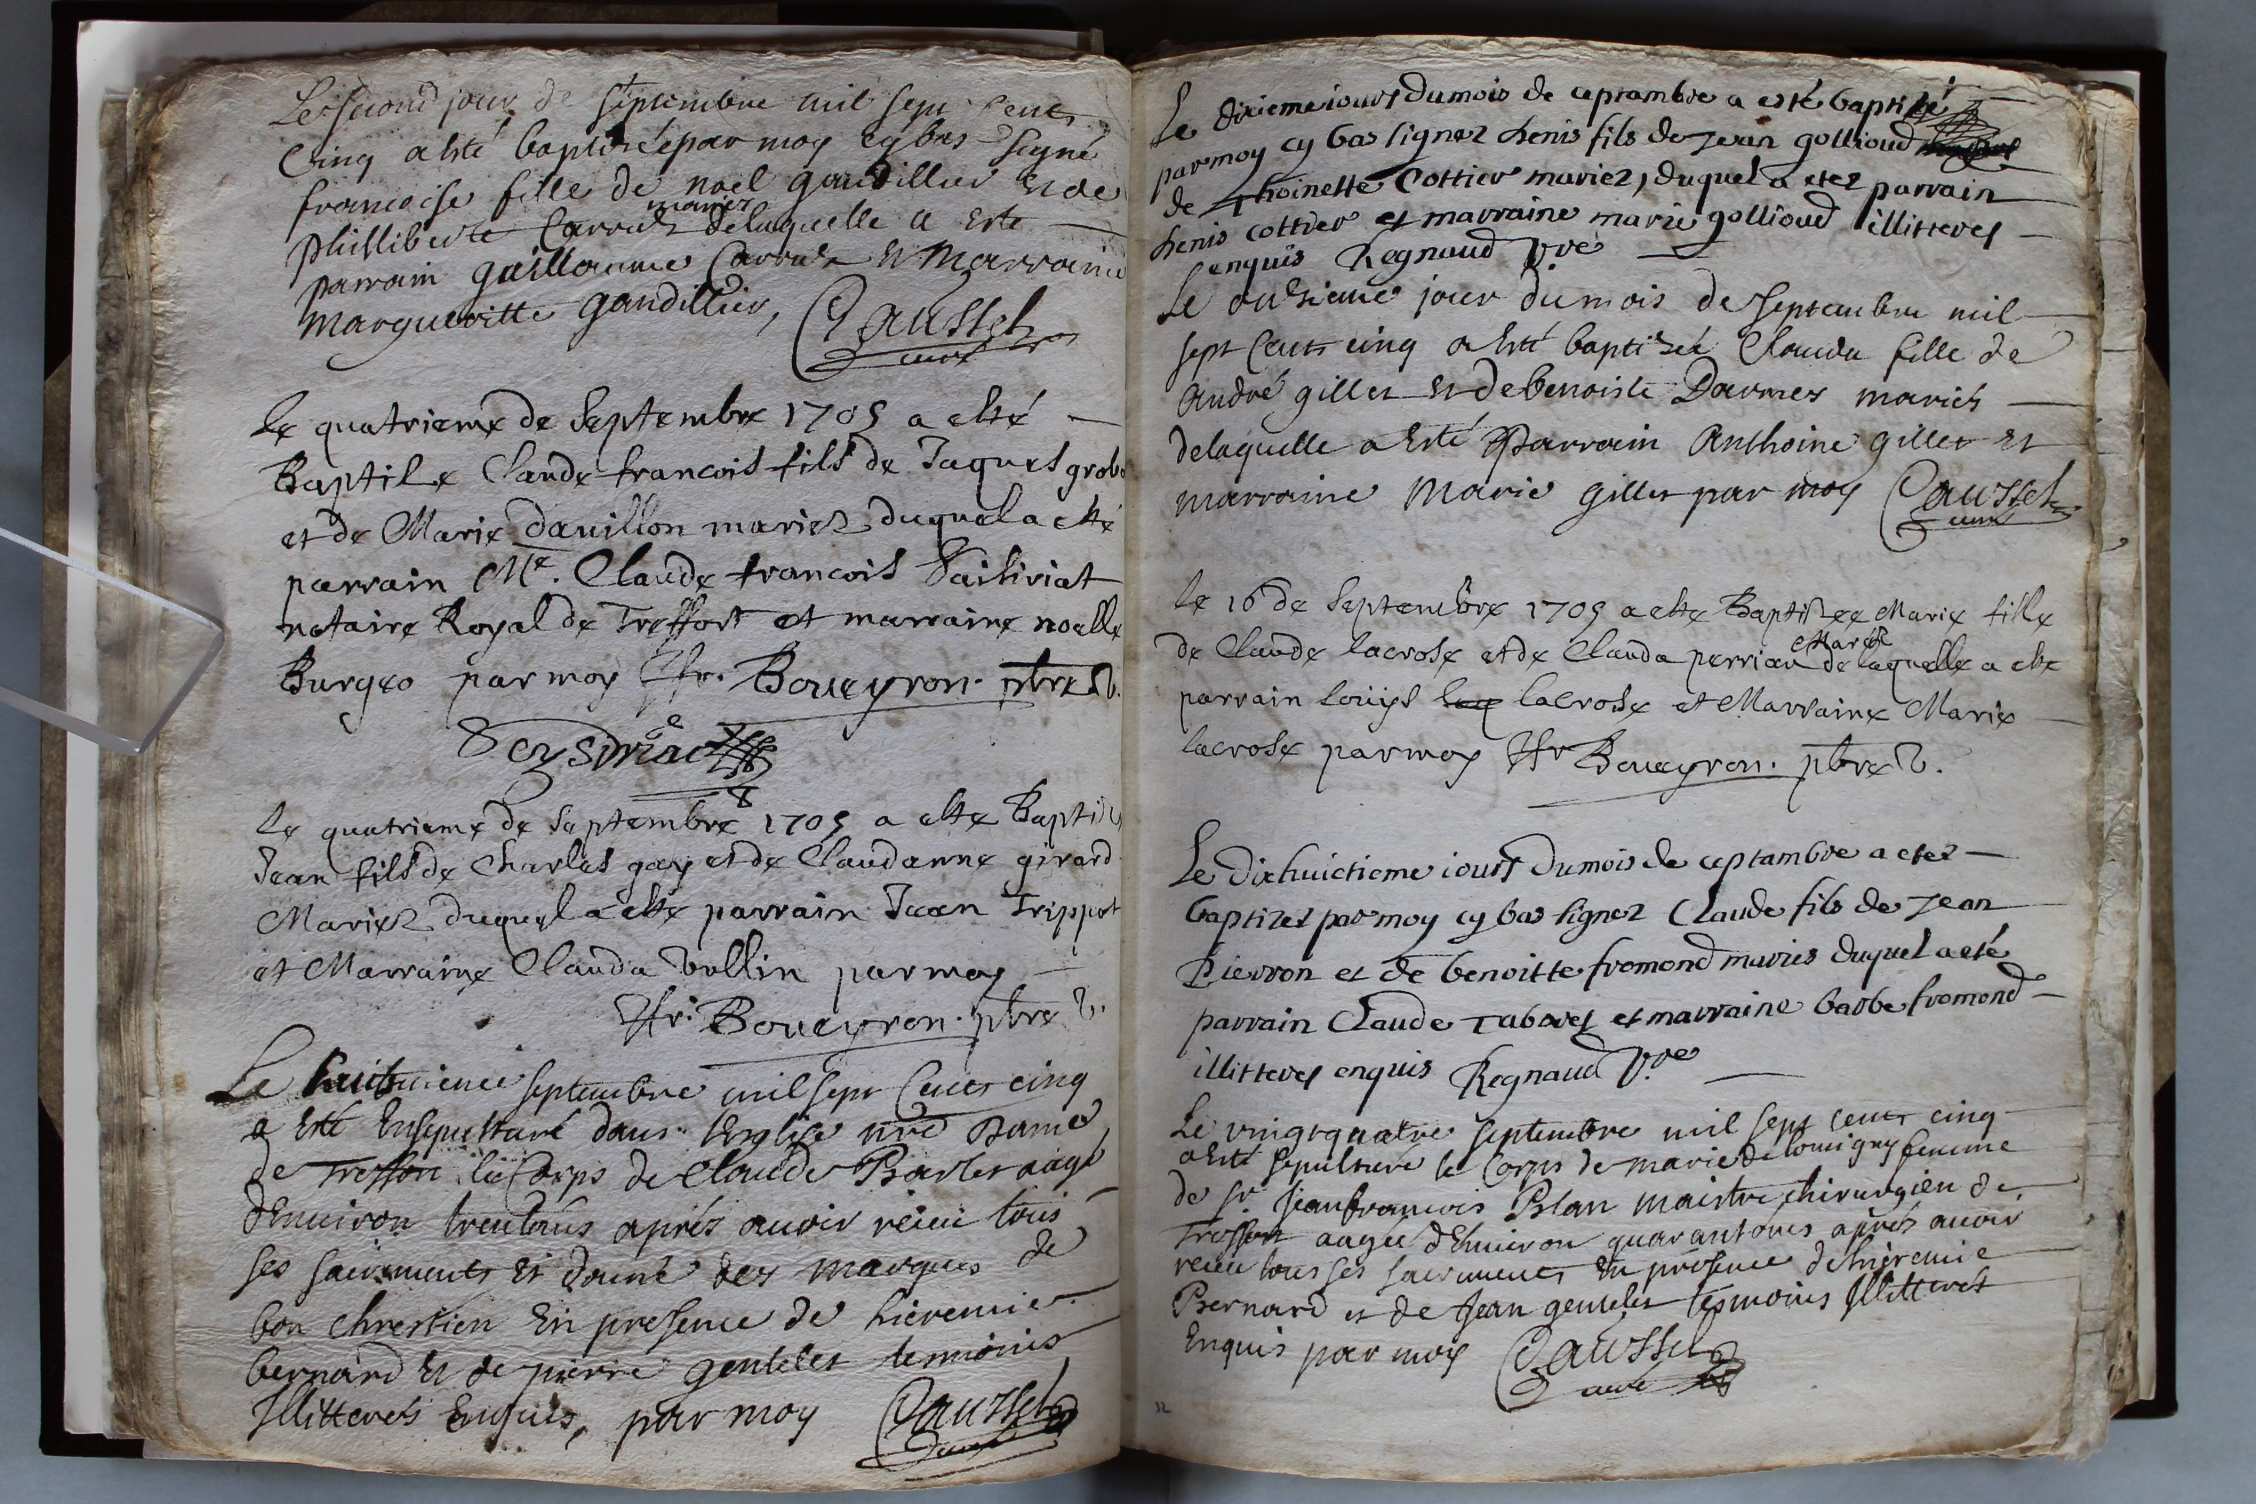 Le second jour de septembre mil sept cents
Cinq a esté baptisée par moy cy bas signé
francoise fille de noel gaudillier et de
philliberte Carruz mariez delaquelle a esté
parrain guillaume Carruz et marraine
margueritte gaudillier, Caussel
curé
le quatrieme de septembre 1705 a esté
Baptise Claude francois fils de Jaques grobo
et de Marie davillon mariez duquel a esté
parrain Me. Claude francois
notaire Royal de Treffort et marraine noelle
Burgeo par moy Boueyron. pbre v.
le quatrieme de septembre 1705 a este Baptisé
Jean fils de Charles gay et de Claudanne girard
Mariez duquel a esté parrain Jean Trippot
et Marraine Clauda vullin par moy
Boueyron. pbre v.
Le huitieme septembre mil sept cents cinq
a esté ensepulturé dans l'Esglise nre Dame
de Treffort le Corps de Claude Barlet aagé
d'Environ trent'ans aprés auoir reçeu tous
ses sacrements et donné des marques de
bon chrestien en presence de hieremie
bernard et de pierre gentelet tesmoins
Illitterés enquis, par moy Caussel
curé
Le dixieme iourt du mois de ceptambre a esté baptizé
par moy cy bas signez denis fils de Jean gollioud
de thoinette Cottier mariez, duquel a etez parrain
denis cottier et marraine marie gollioud illitteres
enquis Regnaud vre
Le onzieme jour du mois de septembre mil
sept cents cinq a esté baptizée Clauda fille de
andré gillet et de benoiste Darmes mariés
delaquelle a esté parrain anthoine gillet et
marraine marie gillet par moy Caussel
curé
le 16 de septembre 1705 a esté Baptizee Marie fille
de Claude lacrose et de Clauda perrian Mariez de laquelle a este
parrain loüys lacrose et Marraine Marie
lacrose par moy Boueyron. pbre v.
Le dixhuictieme iourt du mois de ceptambre a etez
baptizet par moy cy bas signez Claude fils de Jean
Pierron et de benoitte fromond mariés duquel a eté
parrain Claude Taboret et marraine barbe fromond
illitteres enquis Regnaud vre
Le vingtquatre septembre mil sept cents cinq
a esté sepulturé le Corps de marie de louuigny femme
de sr Jeanfrancois Blan maistre chirurgien de
Treffort aagée d'Enuiron quarant'ans aprés auoir
reçeu tous ses sacrements en presence de hieremie
Bernard et de Jean gentelet tesmoins Illitterés
enquis par moy Caussel
curé